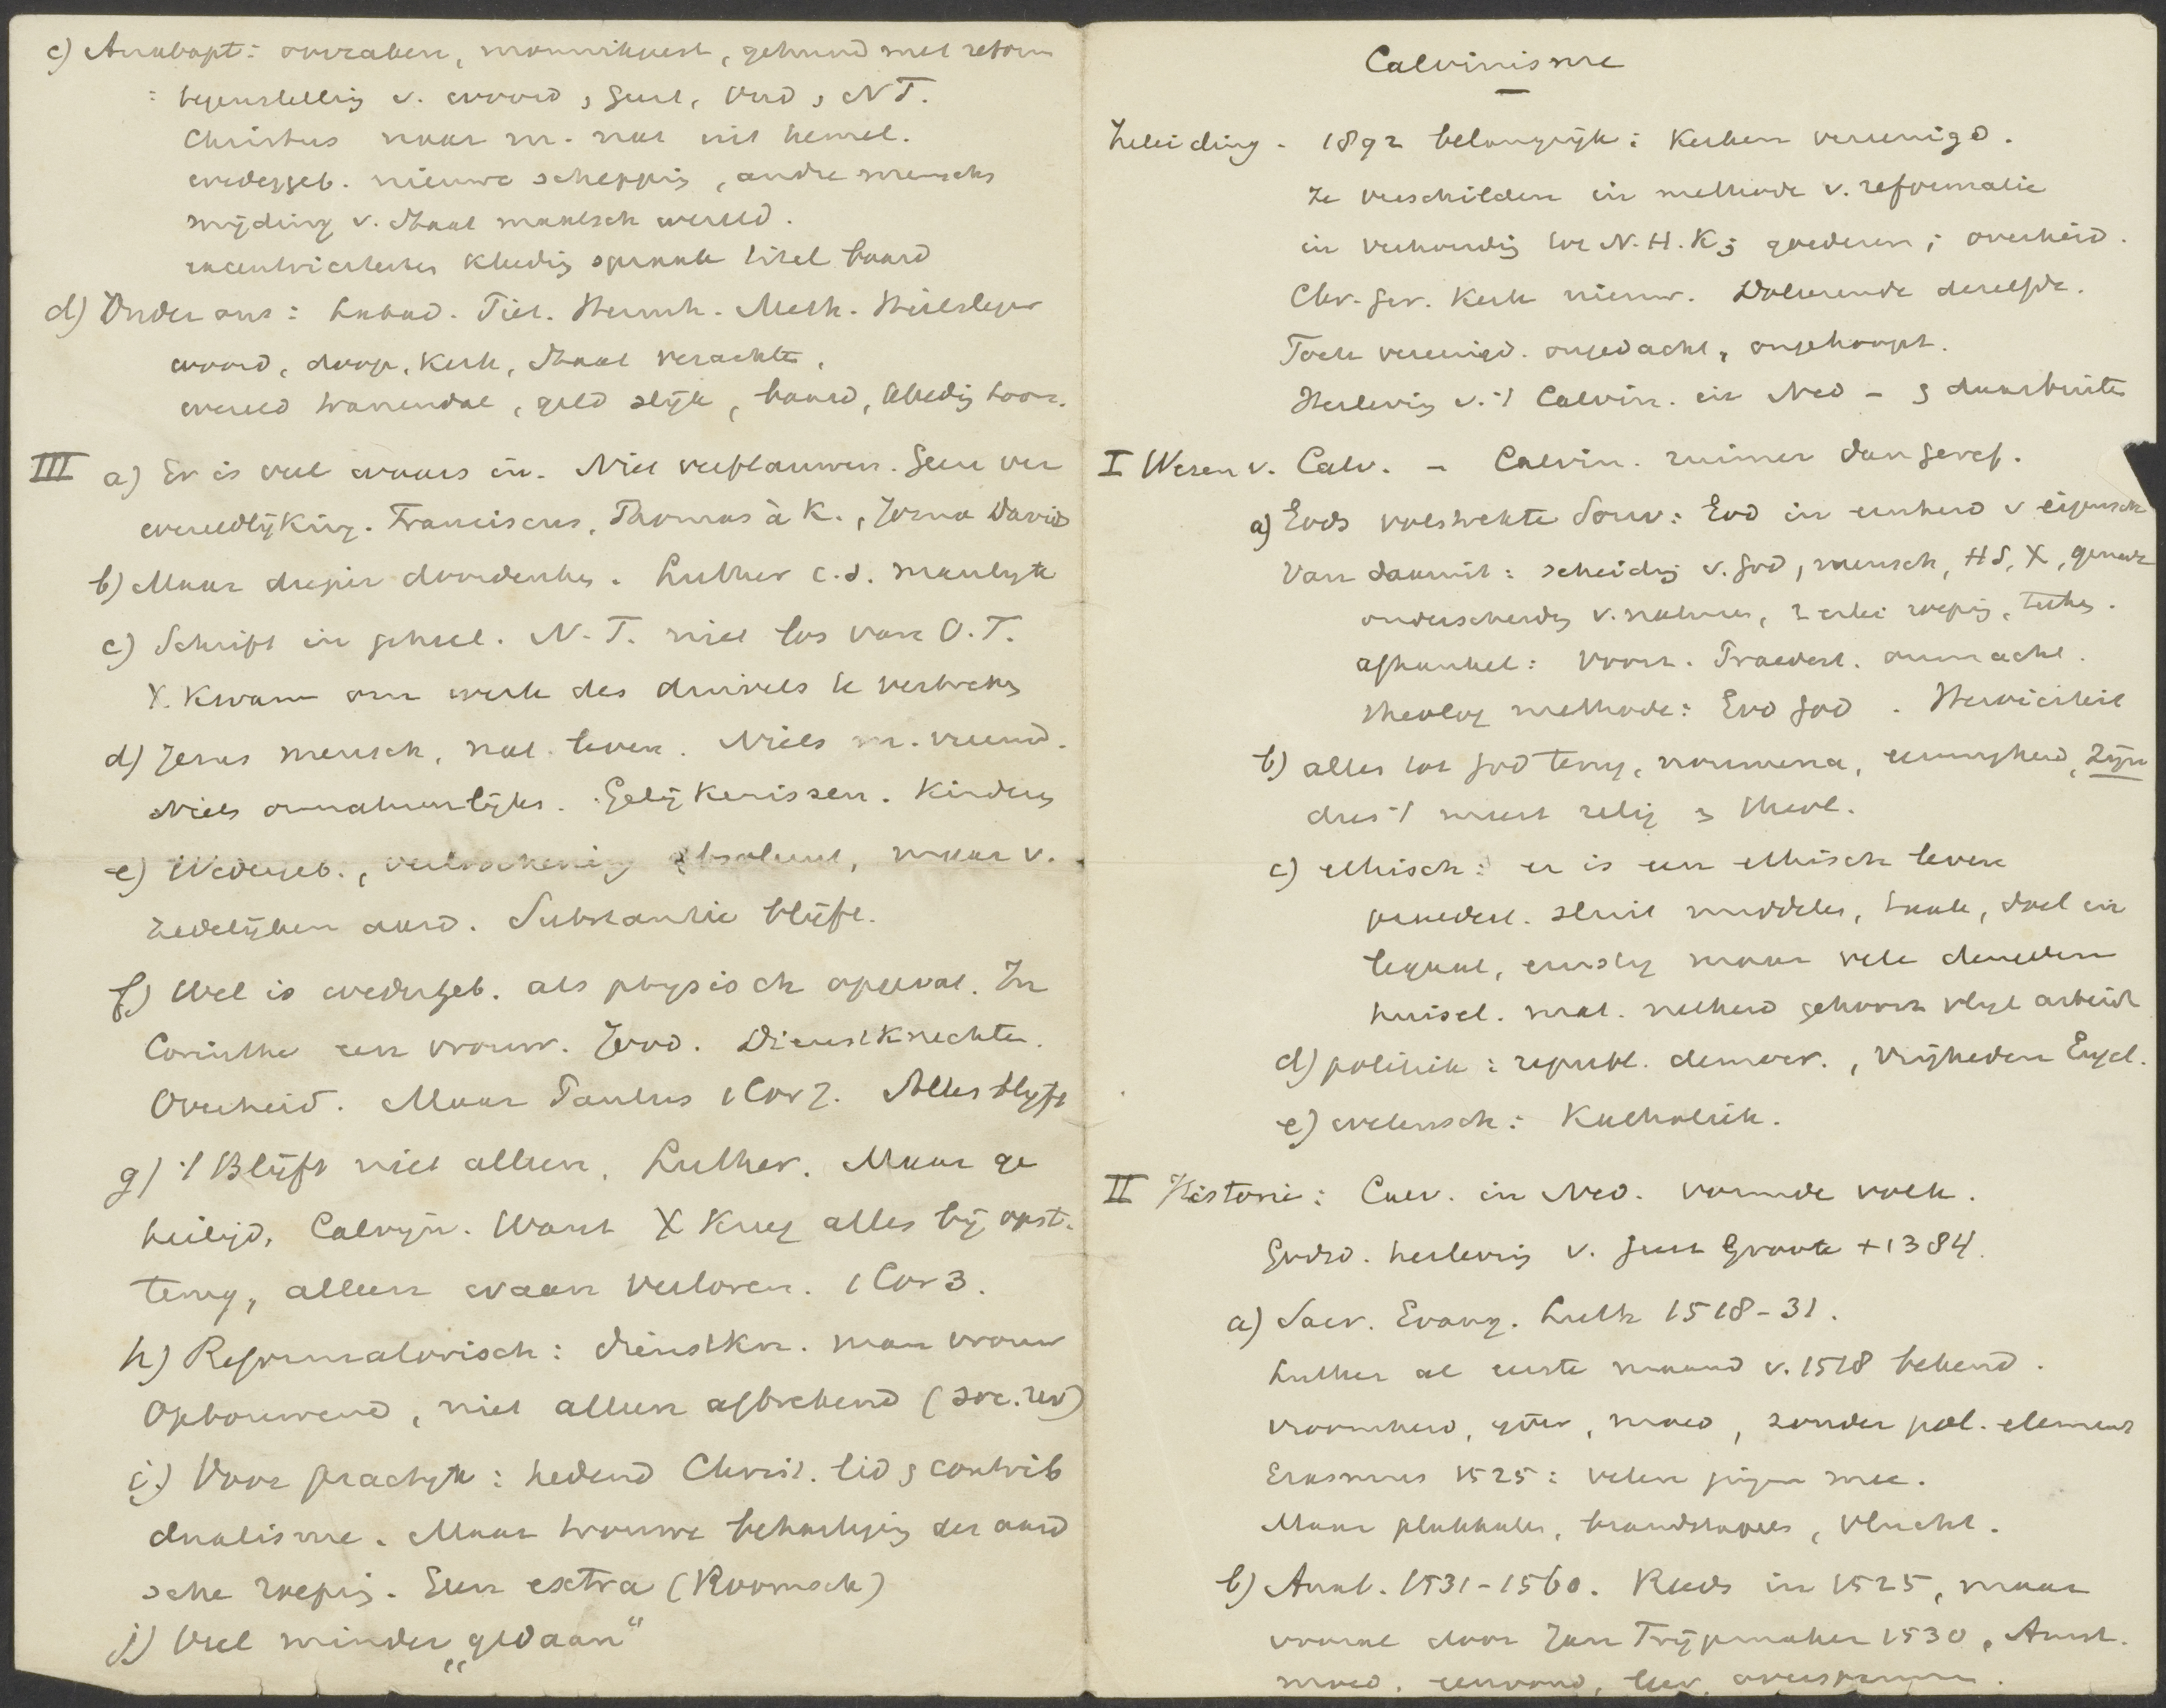 c) Anabapt: oorzaken, monnikgeest, gekruid met reform
: tegenstelling v. woord, Geest, Oud, NT.
Christus naar m. nat uit hemel.
wedergeb. nieuwe schepping, andre mensch
mijding v. Staat maatsch wereld.
excentriciteiten kleeding spraak titel baard
d) Onder ons: Labad. Piet. Hernnh. Meth. Heilsleger
woord, doop, Kerk, Staat verachten,
wereld tranendal, geld slijk, baard, kleedig toon.
III a) Er is veel waars in. Niet verflauwen. Geen ver
wereldlijking. Franciscus, Thomas à K., Joris David
b) Maar dieper doordenken. Luther c.s. maakte
c) Schrift in geheel. N.T. niet los van O.T.
X. Kwam om werk des duivels te verbreken
d) Jezus mensch, nat. leven. Niets m. vreemd.
Niets onnatuurlijks. Gelijkenissen. Kinderen
e) Wedergeb., verlossing absoluut, maar v.
zedelijken aard. Substantie blijft.
f) Wel is wedergeb. als physisch opgevat. In
Corinthe een vrouw. Jood. Dienstknechten.
Overheid. Maar Paulus 1 Cor 7. Alles blijft
g) 't Blijft niet alleen. Luther. Maar ge
heiligd, Calvijn. Want X Kreeg alles bij opst.
terug, alleen waan verloren. 1 Cor 3.
h) Reformatorisch: dienstkn. man vrouw
Opbouwend, niet alleen afbrekend (soc. rev)
i) Voor practijk: hedend Christ. lid & contrib
dualisme. Maar trouwe behartiging der aard
sche roeping. Geen extra (Roomsch)
j) Veel minder „gedaan"
Calvinisme
Inleiding - 1892 belangrijk: Kerken vereenigd.
Ze verschilden in methode v. reformatie
in verhouding tot N.H.K; goederen; overheid.
Chr. Ger. Kerk nieuw. Doleerende dezelfde.
Toch vereenigd. ongedacht, ongehoopt.
Herleving v. 't Calvin. in Ned - & daarbuiten
I Wezen v. Calv. - Calvin. ruimer dan Geref.
a) Gods volstrekte Souv: God in eenheid v eigensch
Van daaruit: scheiding v. God, mensch, HS, X, genade
onderscheiding v. natuur, 2 erlei roeping, teeken.
afhankel: voorz. Praedest. onmacht.
theolog methode: God God. Heroiciteit
b) alles tot God terug, noumena, eeuwigheid, Zijn
dus 't meest relig & theol.
c) ethisch: er is een ethisch leven
praedest. sluit middelen, taak, doel in
legaal, ernstig maar vele deugden
huisel. mat. netheid gehoorz vlijt arbeid
d) politiek: republ. democr., vrijheden Engel.
e) wetensch: Katholiek.
II Historie: Calv. in Ned. vormde volk.
Godsd. herleving v. Geert Groote + 1384.
a) Sacr. Evang. Luth 1518-31.
Luther al eerste maand v. 1518 bekend.
vroomheid, ijver, moed, zonder pol. element
Erasmus 1525: velen gingen mee.
Maar plakkaten, brandstapels, vlucht.
b) Anab. 1531-1560. Reeds in 1525, maar
vooral door Jan Trijpmaker 1530, Amst.
moed, eenvoud,